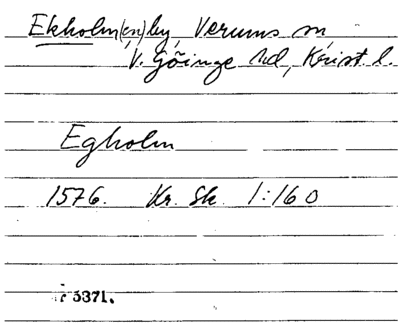 Ekholm(en) by, Verums sn
V. Göinge hd, Krist. l.
Egholm
1576. Kr. Sk. 1:160
5371.